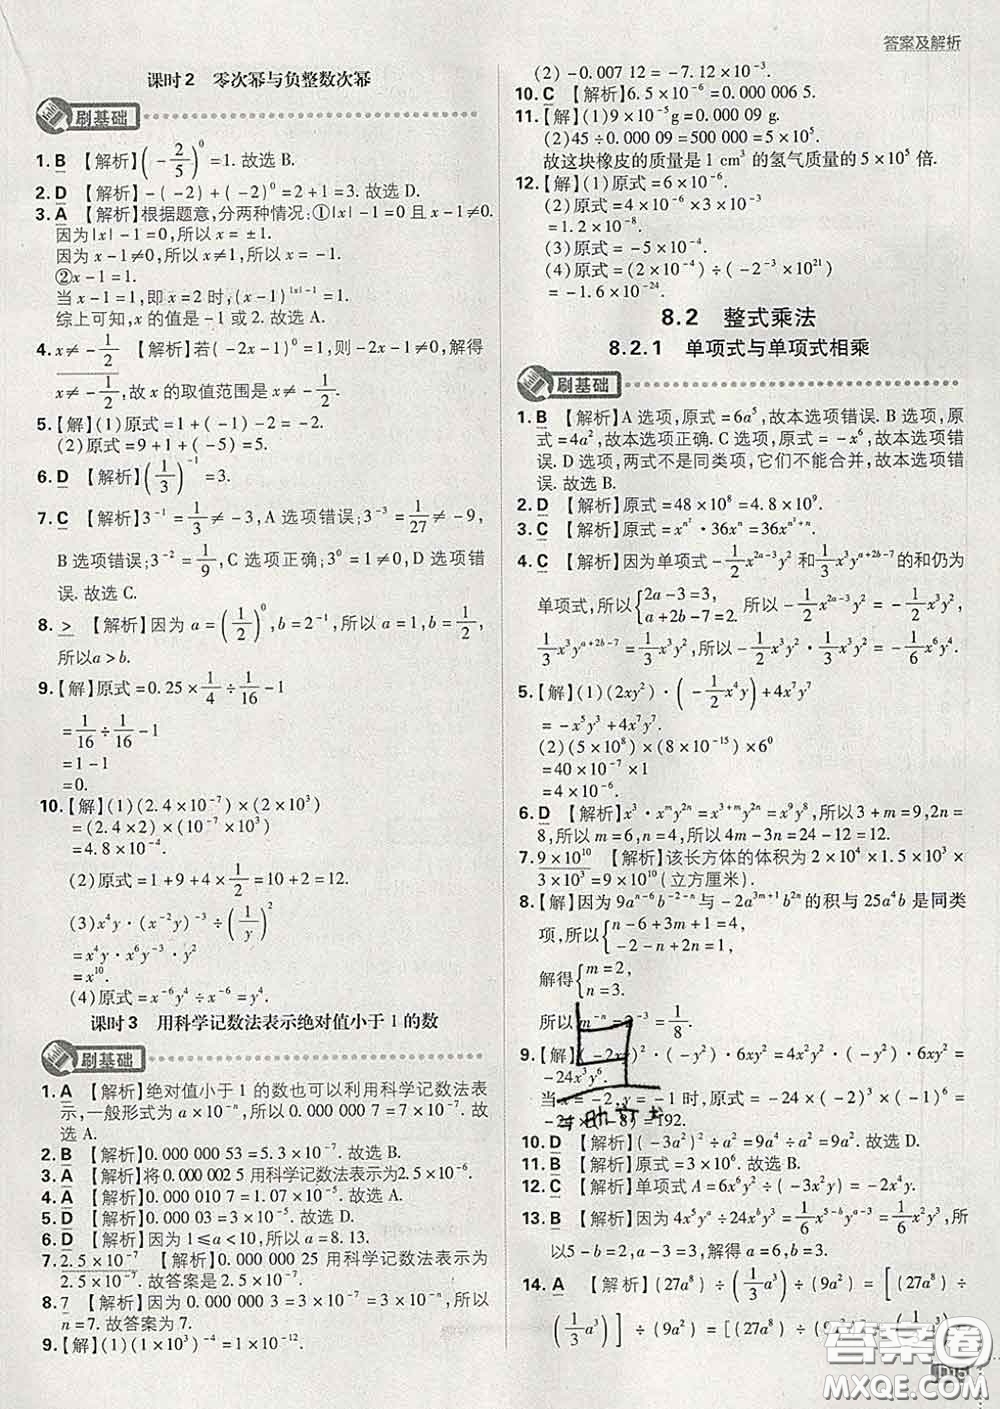 答案及解析
课时2 零次幂与负整数次幂
刷基础
1. B 【解析】(-2/5)^0=1. 故选 B.
2. D 【解析】-(-2)+(-2)^0=2+1=3. 故选 D.
3. A 【解析】根据题意,分两种情况:①|x|-1=0且x-1≠0.
因为|x|-1=0,所以x=±1.
因为x-1≠0,所以x=-1.
②x-1=1.
当x-1=1,即x=2时,(x-1)^{|x|-1}=1.
综上可知,x的值是-1或2. 故选 A.
4. x≠-1/2 【解析】若(-2x-1)^0=1,则-2x-1≠0,解得
x≠-1/2,故x的取值范围是x≠-1/2.
5.【解】(1)原式=1+(-1)-2=-2.
(2)原式=9+1+(-5)=5.
6. D 【解析】(1/3)^{-1}=3.
7. C 【解析】3^{-1}=1/3≠-3,A选项错误;3^{-3}=1/27≠-9,
B选项错误;3^{-2}=1/9,C选项正确;3^0=1≠0,D选项错
误. 故选 C.
8. > 【解析】因为a=(1/2)^0,b=2^{-1},所以a=1,b=1/2,
所以a>b.
9.【解】原式=0.25×1/4÷1/16-1
=1/16÷1/16-1
=1-1
=0.
10.【解】(1)(2.4×10^{-7})×(2×10^3)
=(2.4×2)×(10^{-7}×10^3)
=4.8×10^{-4}.
(2)原式=1+9+4×1/2=10+2=12.
(3)x^4y·(x^{-2}y)^{-3}÷(1/y)^2
=x^4y·x^6y^{-3}·y^2
=x^{10}.
(4)原式=x^{-6}y^4÷x^{-6}=y^4.
课时3 用科学记数法表示绝对值小于1的数
刷基础
1. A 【解析】绝对值小于1的数也可以利用科学记数法表
示,一般形式为a×10^{-n},所以0.000 000 7=7×10^{-7}. 故
选 A.
2. B 【解析】0.000 000 53=5.3×10^{-7}. 故选 B.
3. A 【解析】将0.000 002 5用科学记数法表示为2.5×10^{-6}.
4. A 【解析】0.000 010 7=1.07×10^{-5}. 故选 A.
5. D 【解析】0.000 03=3×10^{-5}. 故选 D.
6. D 【解析】因为1≤a<10,所以a=8.13.
7. 2.5×10^{-7} 【解析】0.000 000 25用科学记数法表示为
2.5×10^{-7}. 故答案是2.5×10^{-7}.
8. 7 【解析】因为0.000 000 3=3×10^{-7}=3×10^{-n},所以
n=7. 故答案为7.
9.【解】(1)(10^3)^{-4}=1×10^{-12}.
(2)-0.007 12=-7.12×10^{-3}.
10. C 【解析】6.5×10^{-6}=0.000 006 5.
11.【解】(1)9×10^{-5}g=0.000 09 g.
(2)45÷0.000 09=500 000=5×10^5.
故这块橡皮的质量是1 cm^3的氢气质量的5×10^5倍.
12.【解】(1)原式=6×10^{-6}.
(2)原式=4×10^{-6}×3×10^{-3}
=1.2×10^{-8}.
(3)原式=-5×10^{-4}.
(4)原式=(2×10^{-4})÷(-2^{-3}×10^{21})
=1.6×10^{-24}.
8.2 整式乘法
8.2.1 单项式与单项式相乘
刷基础
1. B 【解析】A选项,原式=6a^5,故本选项错误. B选项,原
式=4a^2,故本选项正确. C选项,原式=-x^6,故本选项错
误. D选项,两式不是同类项,它们不能合并,故本选项错
误. 故选 B.
2. D 【解析】原式=48×10^8=4.8×10^9.
3. C 【解析】原式=x^{n^2}·36x^n=36x^{n^2+n}.
4. C 【解析】因为单项式-1/2x^{2a-3}y^2和1/3x^3y^{a+2b-7}的和仍为
单项式,所以{2a-3=3, a+2b-7=2. 所以-1/2x^{2a-3}y^2=-1/2x^3y^2,
1/3x^3y^{a+2b-7}=1/3x^3y^2,所以-1/2x^3y^2·1/3x^3y^2=-1/6x^6y^4.
5.【解】(1)(2xy^2)·(-1/2x^4y)+4x^7y^7
=-x^5y^3+4x^7y^7.
(2)(5×10^8)×(8×10^{-15})×6^0
=40×10^{-7}×1
=4×10^{-6}.
6. D 【解析】x^3·x^my^{2n}=x^{3+m}y^{2n}=x^9y^8,所以3+m=9,2n=
8,所以m=6,n=4,所以4m-3n=24-12=12.
7. 9×10^{10} 【解析】该长方体的体积为2×10^4×1.5×10^3×
3×10^3=9×10^{10}(立方厘米).
8.【解】因为9a^{n-6}b^{-2-n}与-2a^{3m+1}b^{2n}的积与25a^4b是同类
项,所以{n-6+3m+1=4, -2-n+2n=1,
解得{m=2, n=3.
所以m^{-n}=2^{-3}=1/8.
9.【解】(-2xy)^2·(-y^2)·6xy=4x^2y^2·(-y^2)·6xy=
-24x^3y^6.
当x=-2,y=-1时,原式=-24×(-2)^3×(-1)^6=
-24×(-8)=192.
10. D 【解析】(-3a^2)^2÷a^2=9a^4÷a^2=9a^2. 故选 D.
11. B 【解析】原式=3×10^4. 故选 B.
12. C 【解析】单项式A=6x^6y^2÷(-3x^4y)=-2x^2y.
13. B 【解析】因为4x^5y^a÷24x^by^3=1/6x^{5-b}y^{a-3}=1/6x^3,所
以5-b=2,a-3=3,解得a=6,b=3.
14. A 【解析】(27a^8)÷(1/3a^3)÷(9a^2)=[(27a^8)÷
(1/3a^3)]÷(9a^2)=[(27÷
答案圈
MXQE.COM
D15